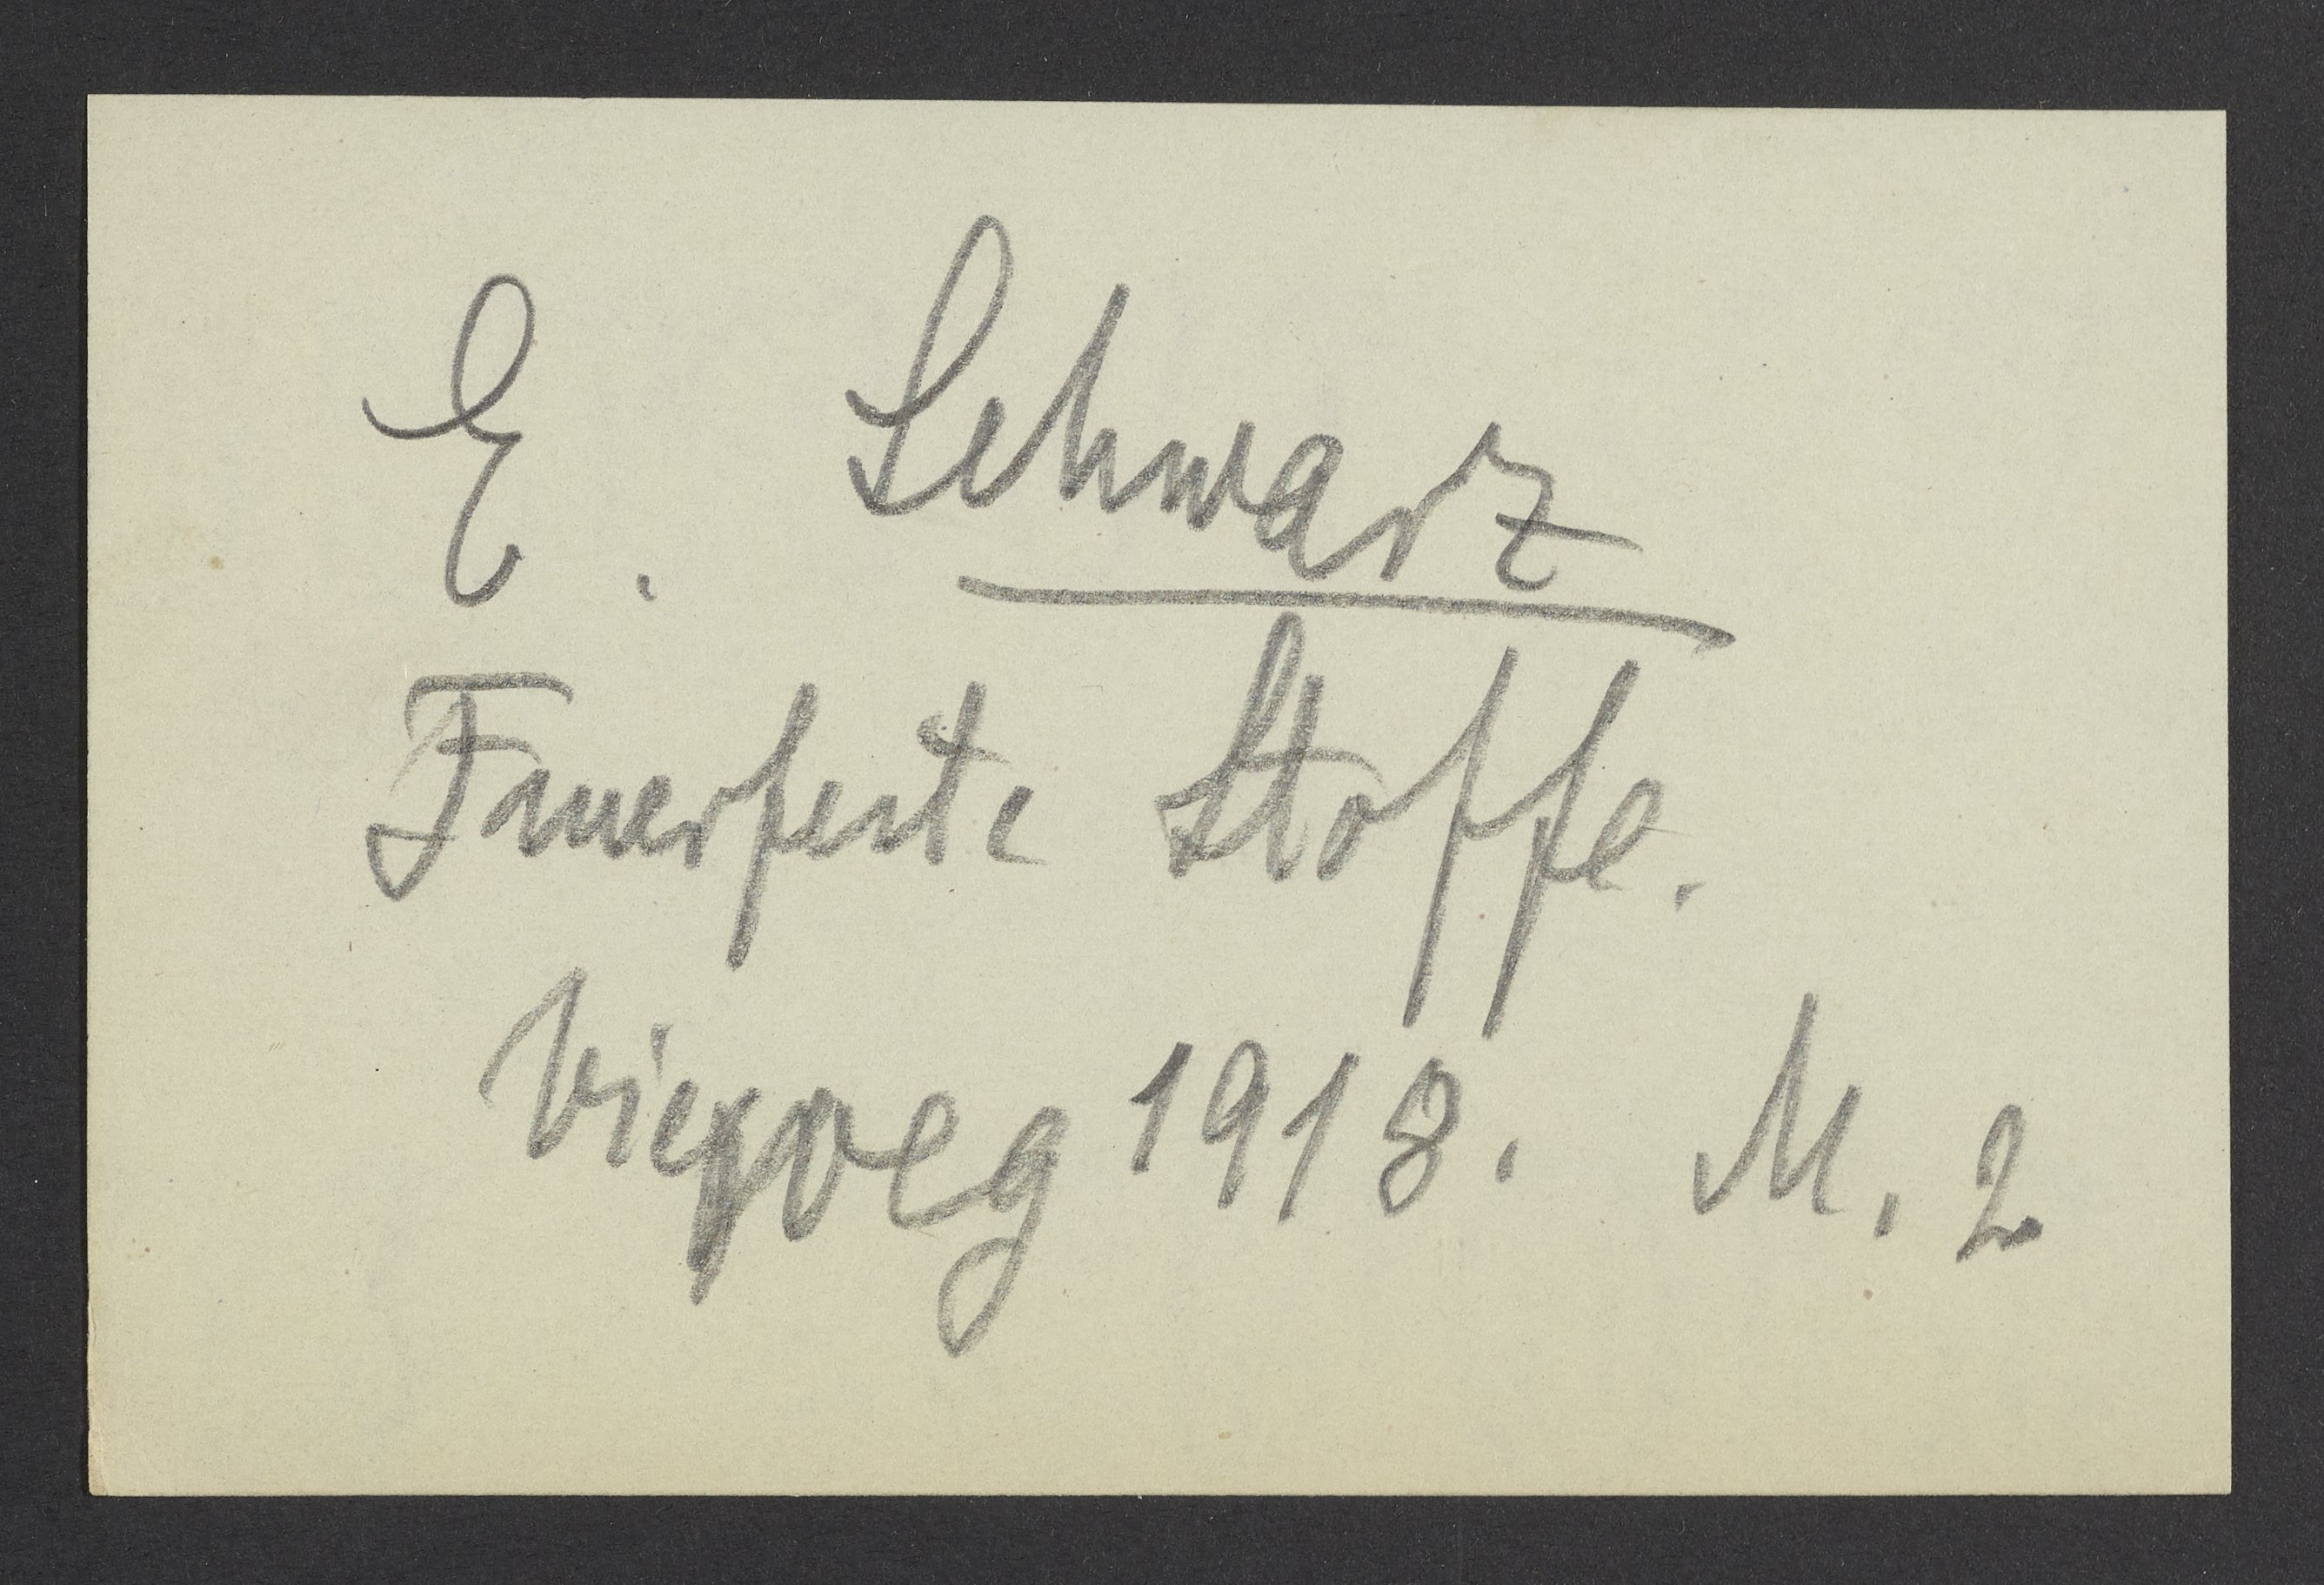 E. Schwarz
Feuerfeste Stoffe.
Vieweg 1918. M. 2